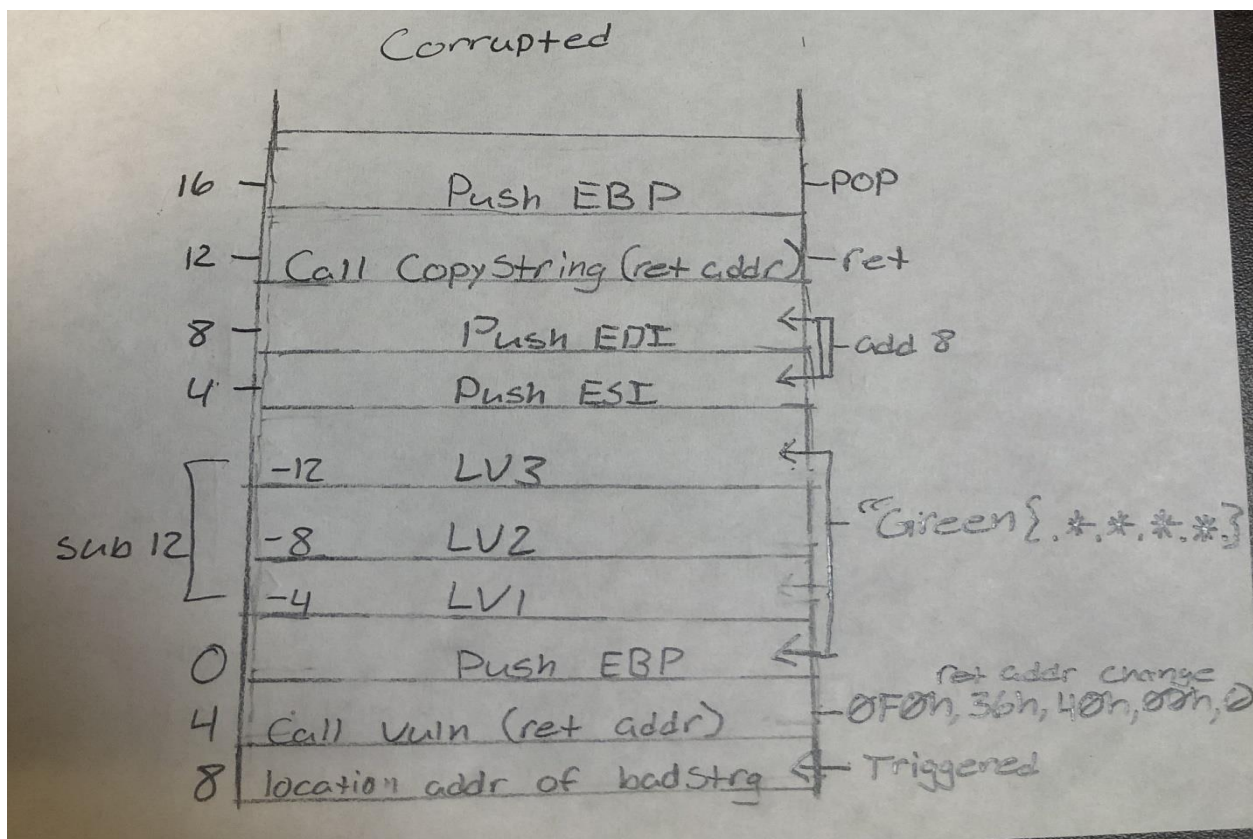 Corrupted
16 Push EBP POP
12 Call CopyString (ret addr) ret
8 Push EDI
add 8
4 Push ESI
-12 LV3
sub 12 -8 LV2 "Green{.*.*.*.*.}
-4 LV1
0 Push EBP
ret addr change
4 Call vuln (ret addr) 0F0h, 36h, 40h, 00h, 0
8 location addr of badStrg Triggered